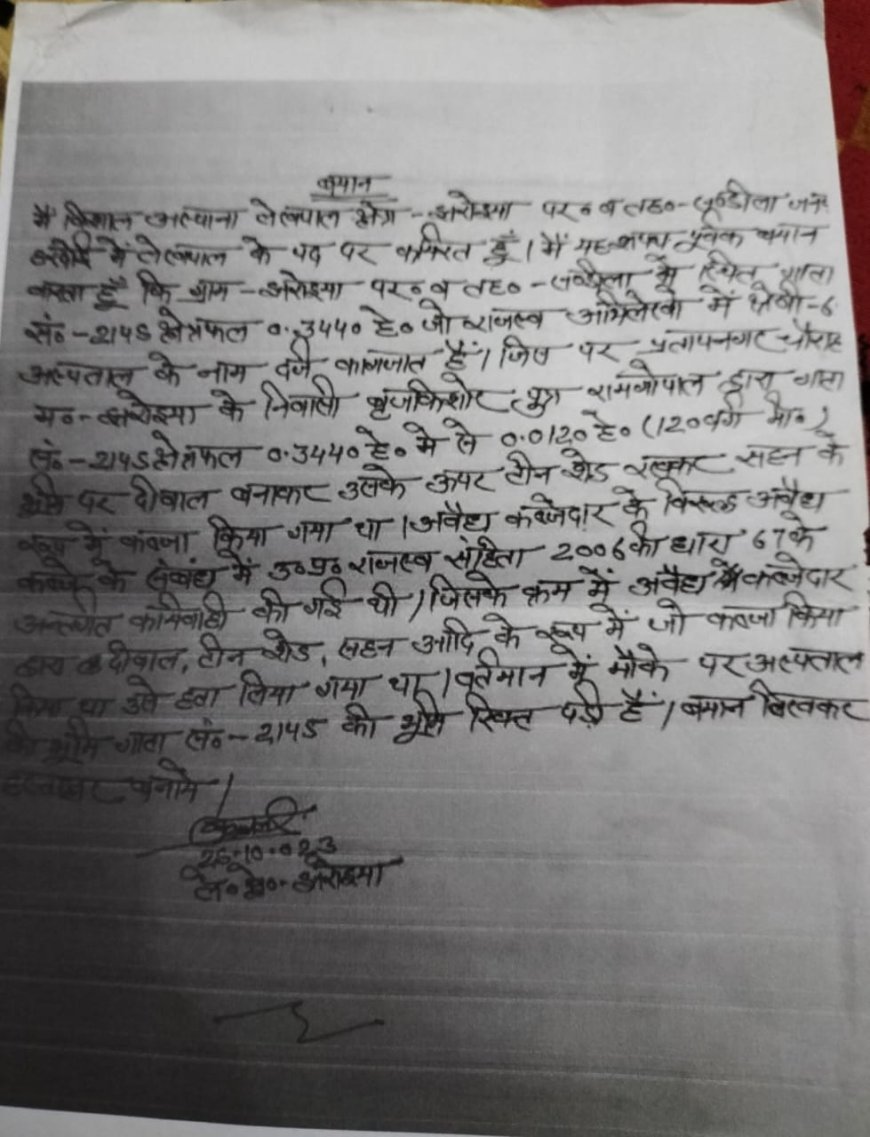 बयान
मैं विशाल अस्थाना लेखपाल क्षेत्र - झरोइया पर० व तह०- सण्डीला जन०
हरदोई में लेखपाल के पद पर कार्यरत हूँ। मैं यह शपथ पूर्वक बयान
करता हूँ कि ग्राम - झरोइया पर० व तह० - सण्डीला में स्थित गाटा
सं०- 2145 क्षेत्रफल 0.3440 हे० जो राजस्व अभिलेखों में श्रेणी-6
अस्पताल के नाम दर्ज कागजात है। जिस पर प्रतापनगर चौराहा
म०- झरोइया के निवासी बृजकिशोर पुत्र रामगोपाल द्वारा गाटा
सं०- 2145 क्षेत्रफल 0.3440 हे० में से 0.0120 हे० (120 वर्ग मी०)
भूमि पर दीवाल बनाकर उसके ऊपर टीन शेड रखकर सहन के
रूप में कब्जा किया गया था। अवैध कब्जेदार के विरूद्ध अवैध
कब्जे के संबंध में उ०प्र० राजस्व संहिता 2006 की धारा 67 के
अन्तर्गत कार्यवाही की गई थी। जिसके क्रम में अवैध कब्जेदार
द्वारा दीवाल, टीन शेड, सहन आदि के रूप में जो कब्जा किया
गया था उसे हटा लिया गया था। वर्तमान में मौके पर अस्पताल
की भूमि गाटा सं०- 2145 की भूमि रिक्त पड़ी है। बयान लिखकर
हस्ताक्षर बनाये।
ले० क्षे०- झरोइया